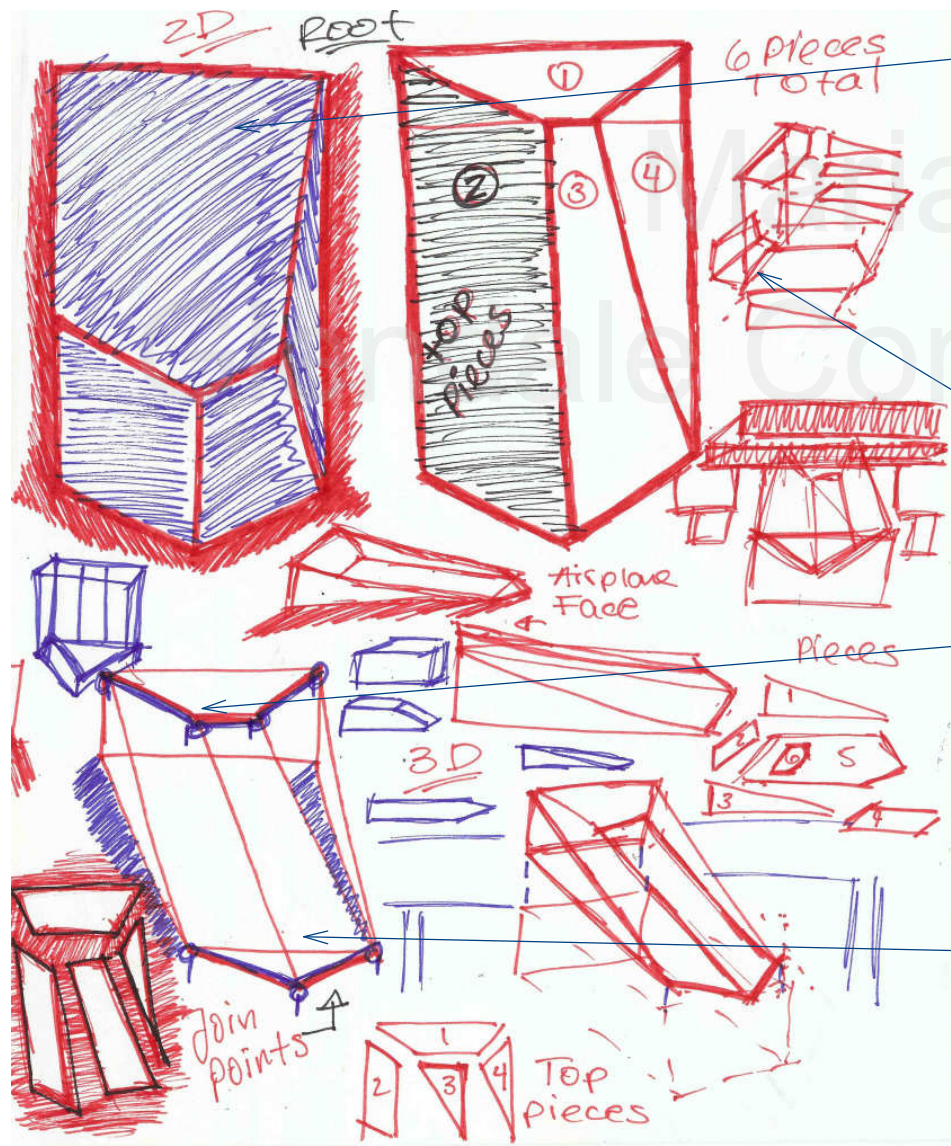 2D Root
6 pieces
Total
1
2
3
4
top
pieces
Airplane
Face
Pieces
1
2
6 5
3
4
3D
Join
points
1
2 3 4
Top
pieces
Maria